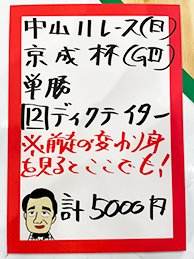 中山11レース(日)
京成杯(GⅢ)
単勝
12ディクテイター
※前走の変わり身
を見るとここでも!
計5000円